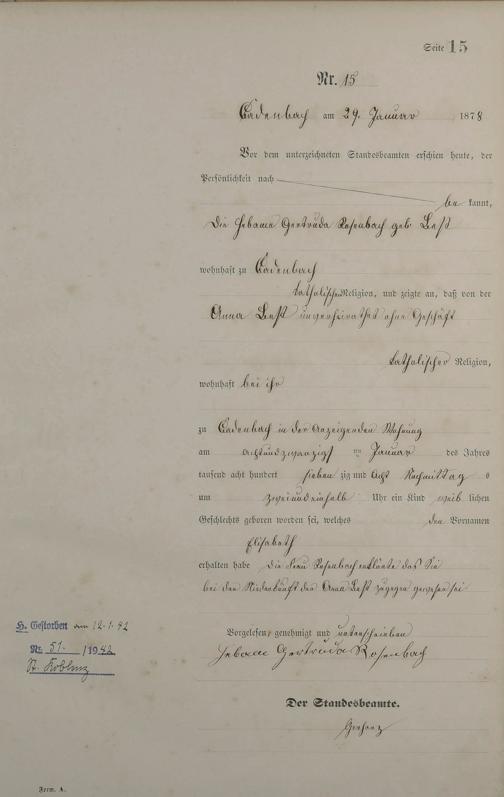 Seite 15
Nr. 15
Cadenbach am 29. Januar 1878
Vor dem unterzeichneten Standesbeamten erschien heute, der
Persönlichkeit nach
be kannt,
die Hebame Gertruda Rosenbach geb Best
wohnhaft zu Cadenbach
katholischer Religion, und zeigte an, daß von der
Anna Best unverheirathet ohne Geschäft
katholischer Religion,
wohnhaft bei ihr
zu Cadenbach in der Anzeigenden Wohnung
am achtundzwanzigst en Januar des Jahres
tausend acht hundert sieben zig und acht Nachmittag s
um zweiundeinhalb Uhr ein Kind weib lichen
Geschlechts geboren worden sei, welches den Vornamen
Elisabeth
erhalten habe die Frau Rosenbach erklärte das Sie
bei der Niederkunft der Anna Best zugegen gewesen sei
Vorgelesen, genehmigt und unterschrieben
Hebame Gertruda Rosenbach
Der Standesbeamte.
H. Gestorben am 12.1.42
Nr. 51. /1942
St. Koblenz
Form. A.